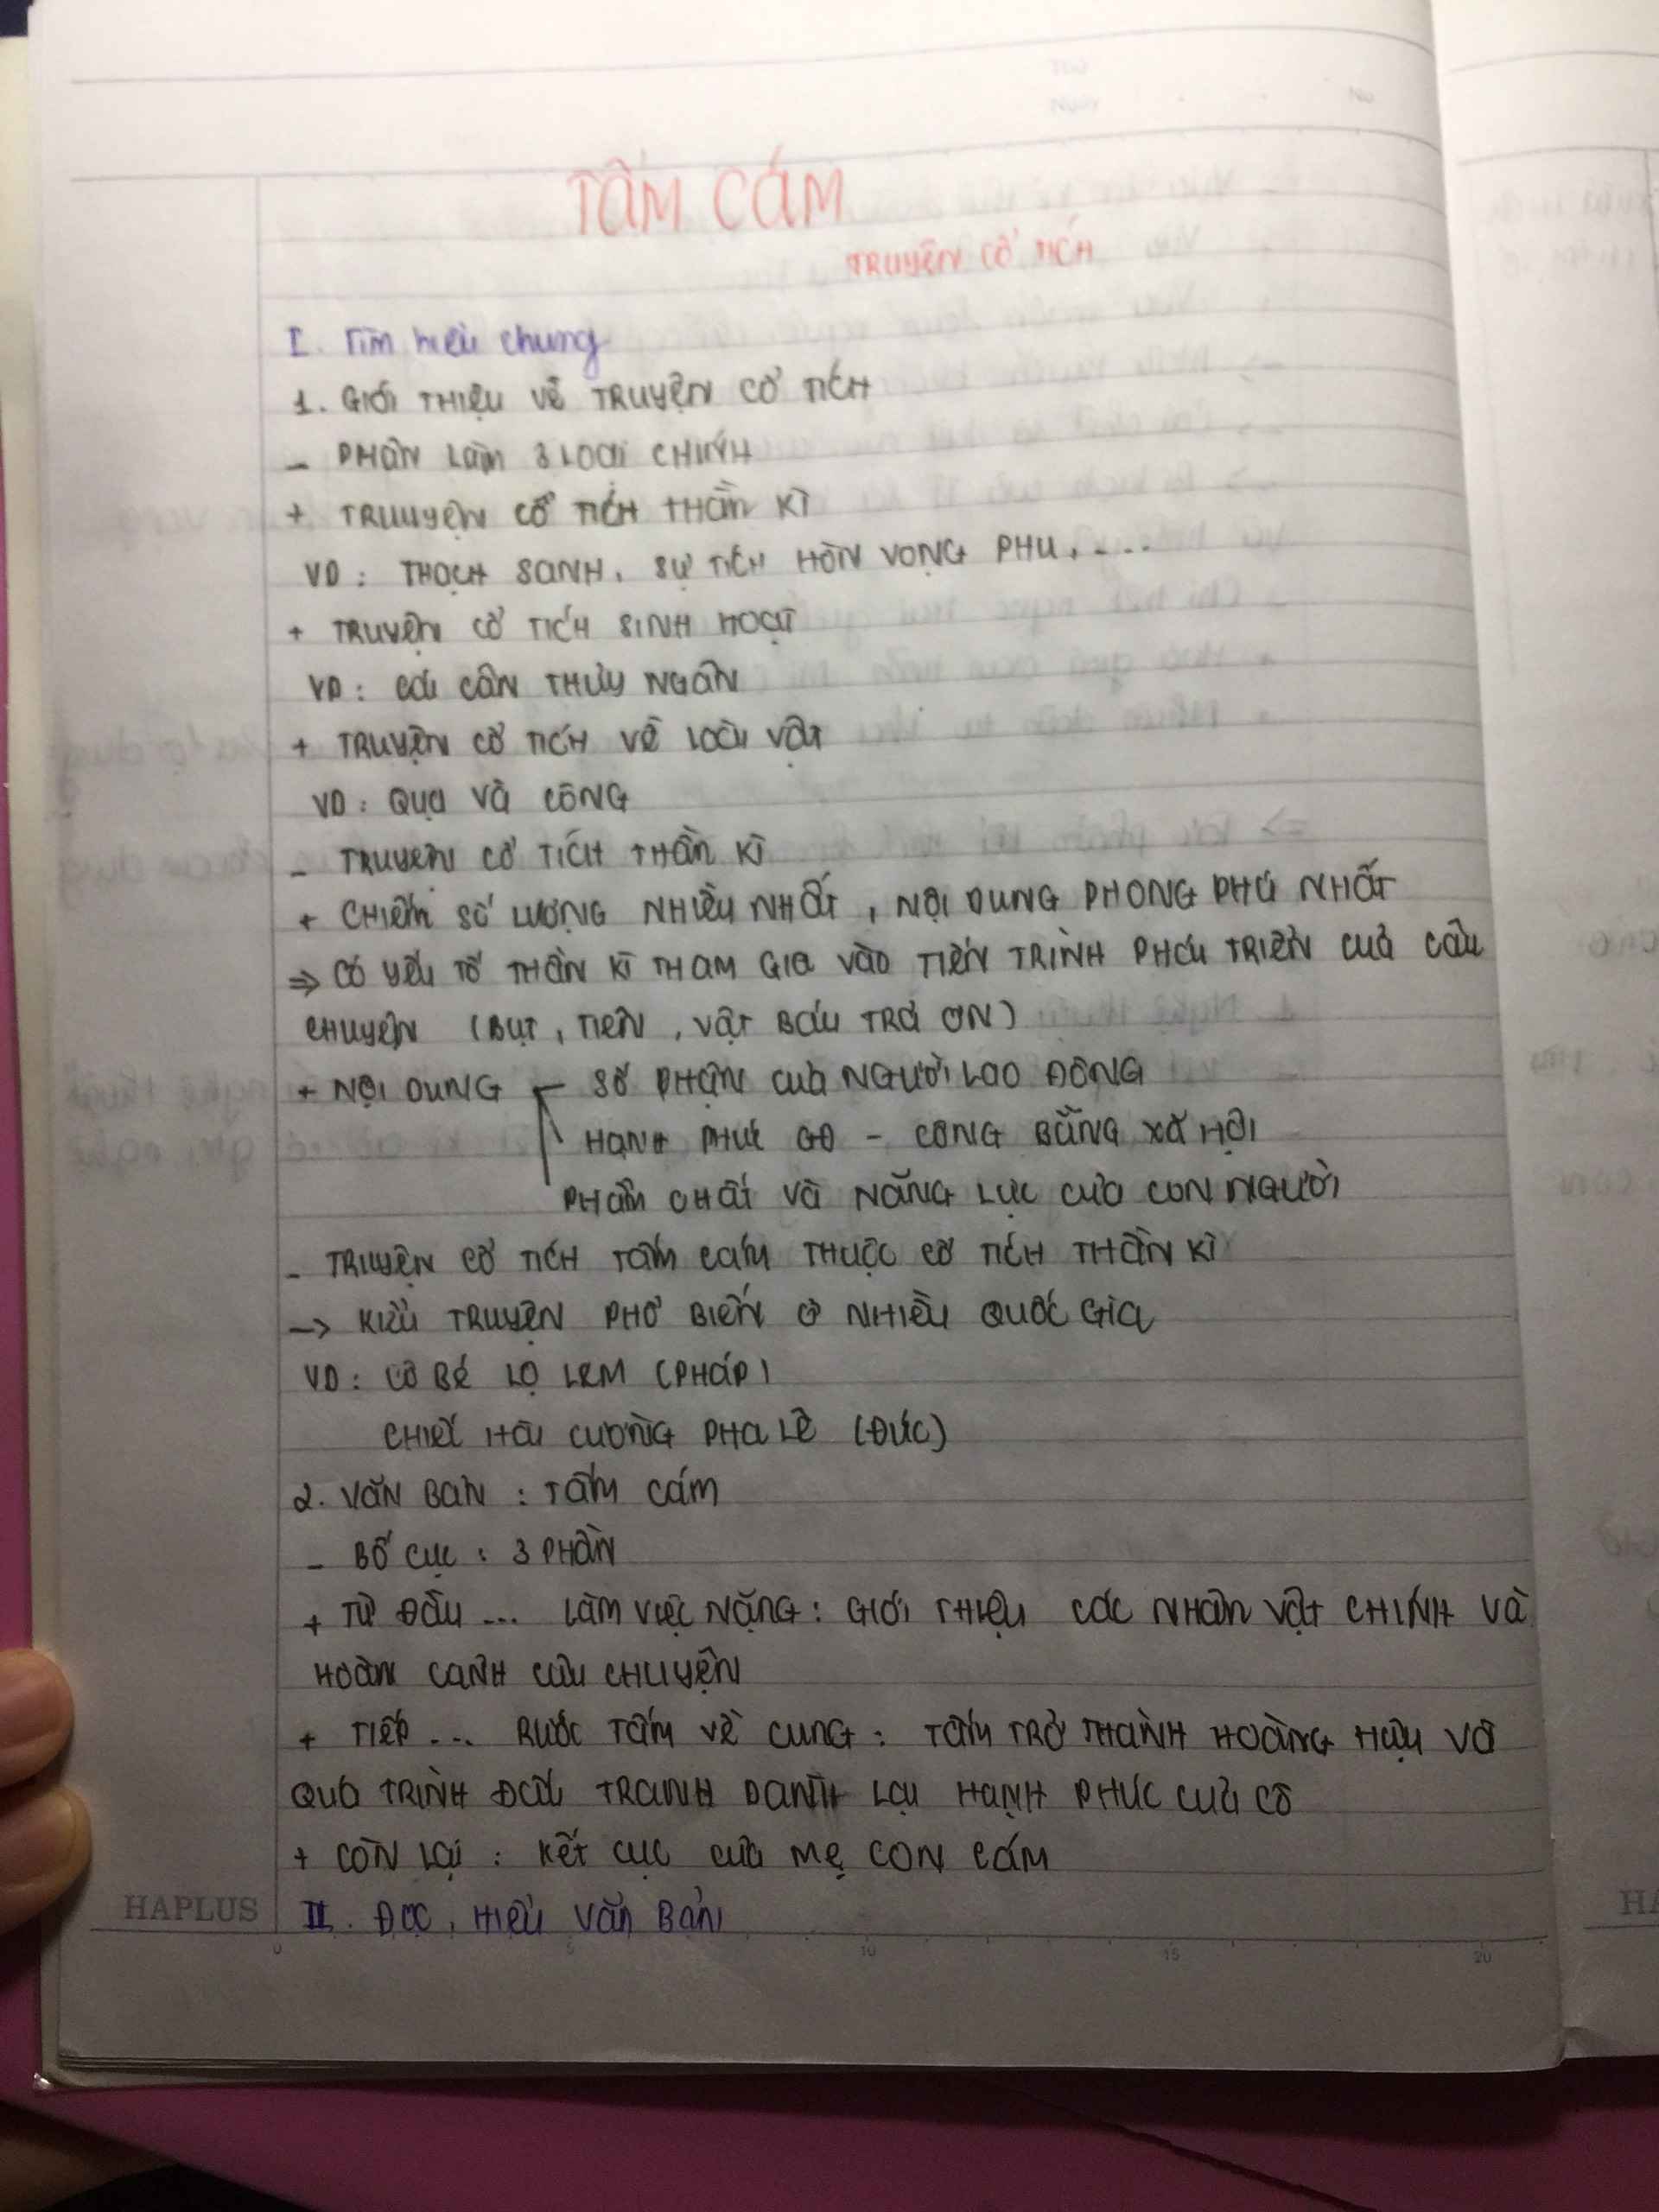 TẤM CÁM
TRUYỆN CỔ TÍCH
I. Tìm hiểu chung
1. GIỚI THIỆU VỀ TRUYỆN CỔ TÍCH
- PHÂN LÀM 3 LOẠI CHÍNH
+ TRUUYỆN CỔ TÍCH THẦN KÌ
VD: THẠCH SANH, SỰ TÍCH HÒN VỌNG PHU, ....
+ TRUYỆN CỔ TÍCH SINH HOẠT
VD: CÁI CÂN THỦY NGÂN
+ TRUYỆN CỔ TÍCH VỀ LOÀI VẬT
VD: QUẠ VÀ CÔNG
- TRUYỆN CỔ TÍCH THẦN KÌ
+ CHIẾM SỐ LƯỢNG NHIỀU NHẤT, NỘI DUNG PHONG PHÚ NHẤT
⇒ CÓ YẾU TỐ THẦN KÌ THAM GIA VÀO TIẾN TRÌNH PHÁT TRIỂN CUẢ CÂU
CHUYỆN (BỤT, TIÊN, VẬT BÁU TRẢ ƠN)
+ NỘI DUNG SỐ PHẬN CUẢ NGƯỜI LAO ĐỘNG
HẠNH PHÚC GĐ - CÔNG BẰNG XÃ HỘI
PHẨM CHẤT VÀ NĂNG LỰC CUẢ CON NGƯỜI
- TRUYỆN CỔ TÍCH TẤM CÁM THUỘC CỔ TÍCH THẦN KÌ
-> KIỂU TRUYỆN PHỔ BIẾN Ở NHIỀU QUỐC GIA
VD: CÔ BÉ LỌ LEM (PHÁP)
CHIẾC HÀI CƯỜNG PHA LÊ (ĐỨC)
2. VĂN BẢN: TẤM CÁM
- BỐ CỤC: 3 PHẦN
+ TỪ ĐẦU ... LÀM VIỆC NẶNG: GIỚI THIỆU CÁC NHÂN VẬT CHÍNH VÀ
HOÀN CẢNH CÂU CHUYỆN
+ TIẾP ... RƯỚC TẤM VỀ CUNG: TẤM TRỞ THÀNH HOÀNG HẬU VÀ
QUÁ TRÌNH ĐẤU TRANH DÀNH LẠI HẠNH PHÚC CUẢ CÔ
+ CÒN LẠI: KẾT CỤC CUẢ MẸ CON CÁM
II. ĐỌC, HIỂU VĂN BẢN
HAPLUS
0 5 10 15 20